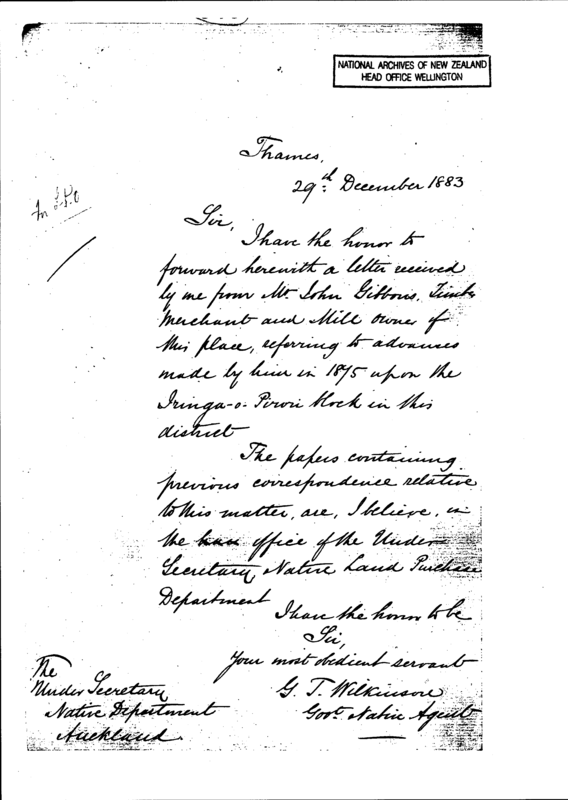 NATIONAL ARCHIVES OF NEW ZEALAND
HEAD OFFICE WELLINGTON
Thames,
29th December 1883
Sir,
I have the honor to
forward herewith a letter received
by me from Mr. John Gibbons, Timber
Merchant and Mill owner of
this place, referring to advances
made by him in 1875 upon the
Iringa-o-Pirori block in this
district
The papers containing
previous correspondence relative
to this matter, are, I believe, in
the office of the Under
Secretary, Native Land Purchase
Department
I have the honor to be
Sir,
Your most obedient servant
G. T. Wilkinson
Govt. Native Agent
The
Under Secretary
Native Department
Auckland